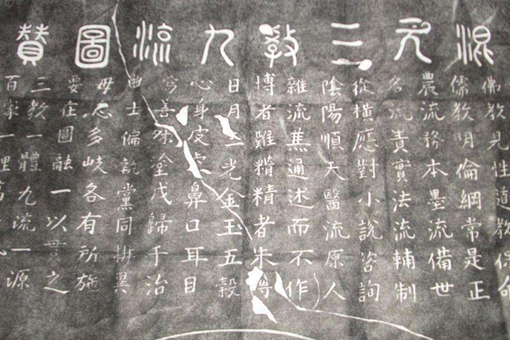 混元三教九流圖贊
佛教見性道教保命
儒教明倫綱常是正
農流務本墨流備世
名流責實法流輔制
從橫應對小說咨詢
陰陽順天醫流原人
雜流兼通述而不作
博者難精精者未博
日月三光金玉五穀
心身皮膚鼻口耳目
為善殊塗咸歸于治
曲士偏執黨同排異
毋患多岐各有所施
要在圖融一以貫之
三教一體九流一源
百家一理萬